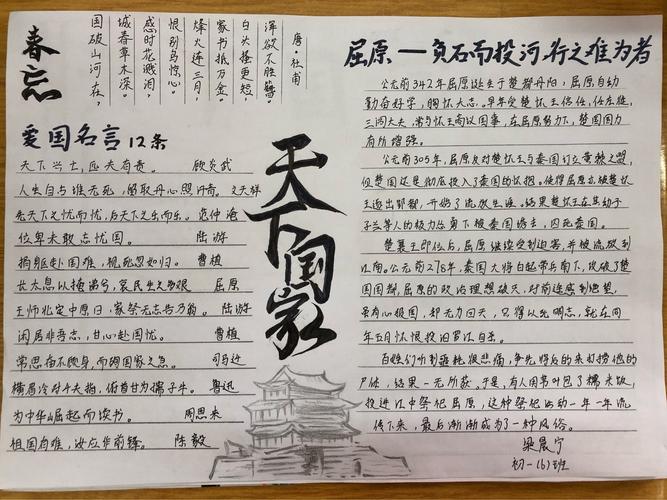 春忘
国破山河在,
城春草木深。
感时花溅泪,
恨别鸟惊心。
烽火连三月,
家书抵万金。
白头搔更短,
浑欲不胜簪。
唐·杜甫
爱国名言12条
天下兴亡,匹夫有责。 顾炎武
人生自古谁无死,留取丹心照汗青。文天祥
先天下之忧而忧,后天下之乐而乐。范仲淹
位卑未敢忘忧国。 陆游
捐躯赴国难,视死忽如归。 曹植
长太息以掩涕兮,哀民生之多艰 屈原
王师北定中原日,家祭无忘告乃翁。 陆游
闲居非吾志,甘心赴国忧。 曹植
常思奋不顾身,而殉国家之急。 司马迁
横眉冷对千夫指,俯首甘为孺子牛。 鲁迅
为中华崛起而读书。 周恩来
祖国有难,汝应作前锋。 陈毅
天下国家
屈原——负石而投河,行之难为者
公元前342年屈原诞生于楚都丹阳,屈原自幼
勤奋好学,胸怀大志。早年受楚怀王信任,任左徒,
三闾大夫,常与怀王商议国事,在屈原努力下,楚国国力
有所增强。
公元前305年,屈原反对楚怀王与秦国订立黄棘之盟,
但楚国还是彻底投入了秦国的怀抱。使得屈原亦被楚怀
王逐出郢都,开始了流放生涯。结果楚怀王在其幼子
子兰等人的极力怂恿下被秦国诱去,囚死秦国。
楚襄王即位后,屈原继续受到迫害,并被流放到
江南。公元前278年,秦国大将白起带兵南下,攻破了楚
国国都,屈原的政治理想破灭,对前途感到绝望,
虽有心报国,却无力回天,只得以死明志,就在同
年五月怀恨投汨罗江自杀。
百姓们听到噩耗很悲痛,争先将后的来打捞他的
尸体,结果一无所获。于是,有人用苇叶包了糯米饭,
投进江中祭祀屈原,这种祭祀活动一年一年流
传下来,最后渐渐成为了一种风俗。
梁晨宁
初一(6)班